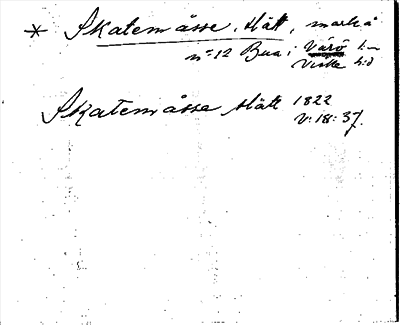 * Skatemåsse, slätt, mark å
nr 12 Bua i Värö sn
Viske hd
Skatemåsse slätt 1822
V: 18: 37.